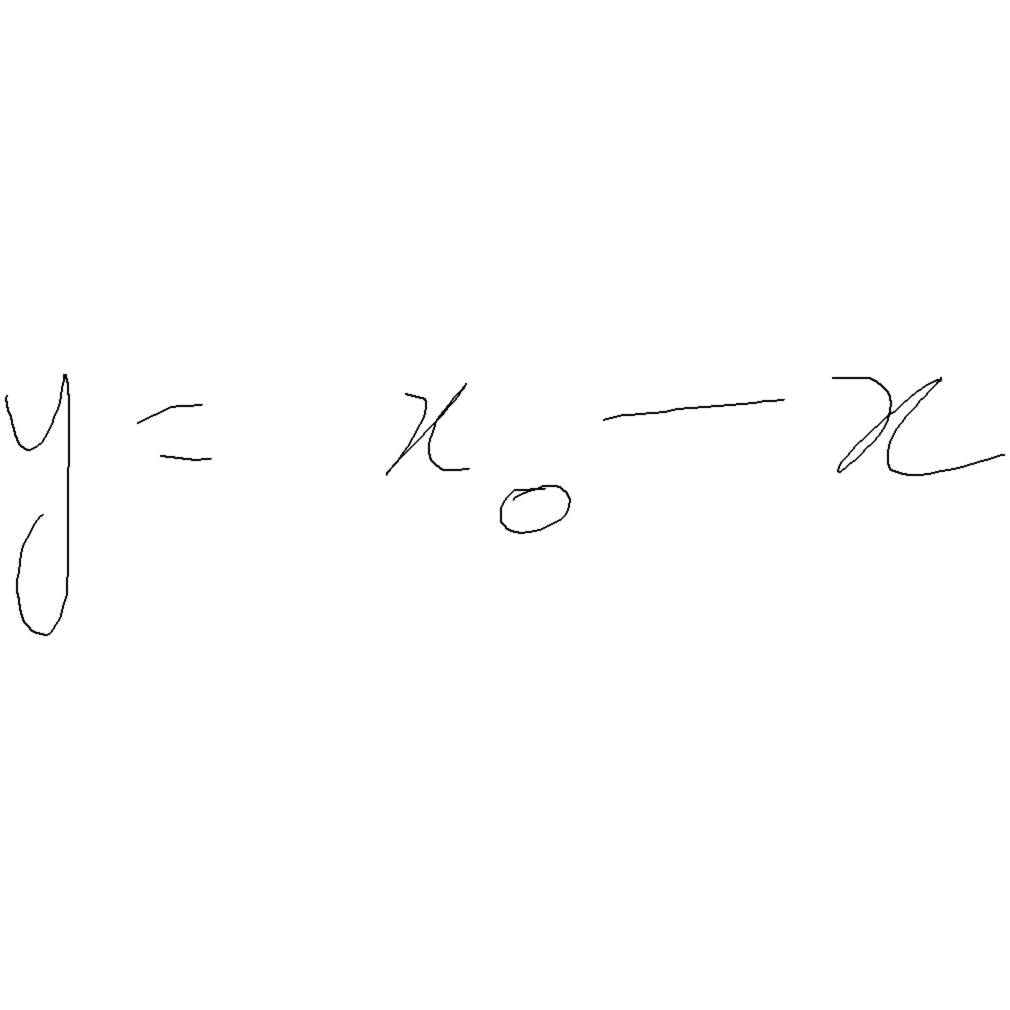 y = x₀ - x